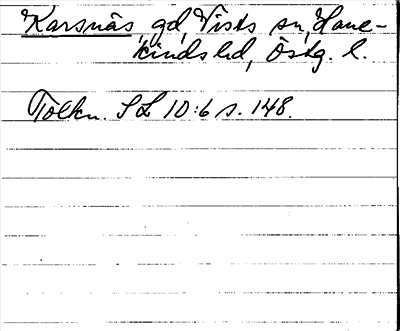 Karsnäs gd, Vists sn, Hane-
kinds hd, Östg. l.
Tolkn. SL 10:6 s. 148.